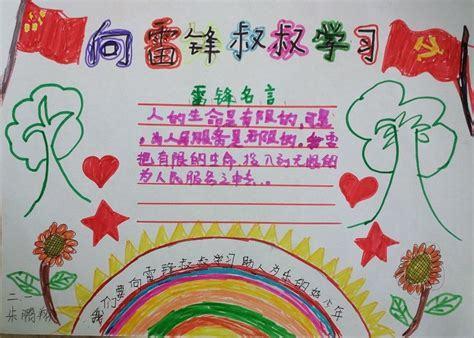 向雷锋叔叔学习
雷锋名言
人的生命是有限的,可是
,为人民服务是无限的。我要
把有限的生命,投入到无限的
为人民服务之中去。。
我们要向雷锋叔叔学习助人为乐的好少年
二.一
朱鹏翔